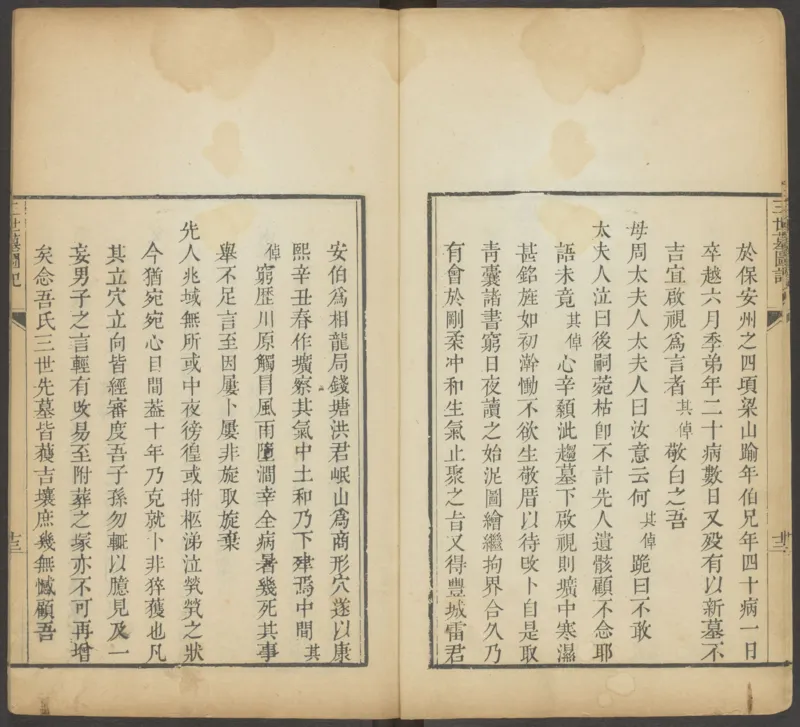 三世墓圖記
於保安州之四頃梁山踰年伯兄年四十病一日
卒越六月季弟年二十病數日又歿有以新墓不
吉宜啟視爲言者其倬敬白之吾
母周太夫人太夫人曰汝意云何其倬跪曰不敢
太夫人泣曰後嗣菀枯卽不計先人遺骸顧不念耶
語未竟其倬心辛顙泚趨墓下啟視則壙中寒濕
甚銘旌如初澣慟不欲生敬厝以待改卜自是取
靑囊諸書窮日夜讀之始泥圖繪繼拘界合久乃
有會於剛柔冲和生氣止聚之旨又得豐城雷君
十二
安伯爲相龍局錢塘洪君岷山爲商形穴遂以康
熙辛丑春作壙察其氣中土和乃下肂焉中間其
倬窮歷川原觸冒風雨墮澗幸全病暑幾死其事
舉不足言至因屢卜屢非旋取旋棄
先人兆域無所或中夜徬徨或拊柩涕泣煢煢之狀
今猶宛宛心目間葢十年乃克就卜非猝獲也凡
其立穴立向皆經審度吾子孫勿輒以臆見及一
妄男子之言輕有改易至附葬之塚亦不可再增
矣念吾氏三世先墓皆薶吉壤庶幾無憾顧吾
三世墓圖記
十三